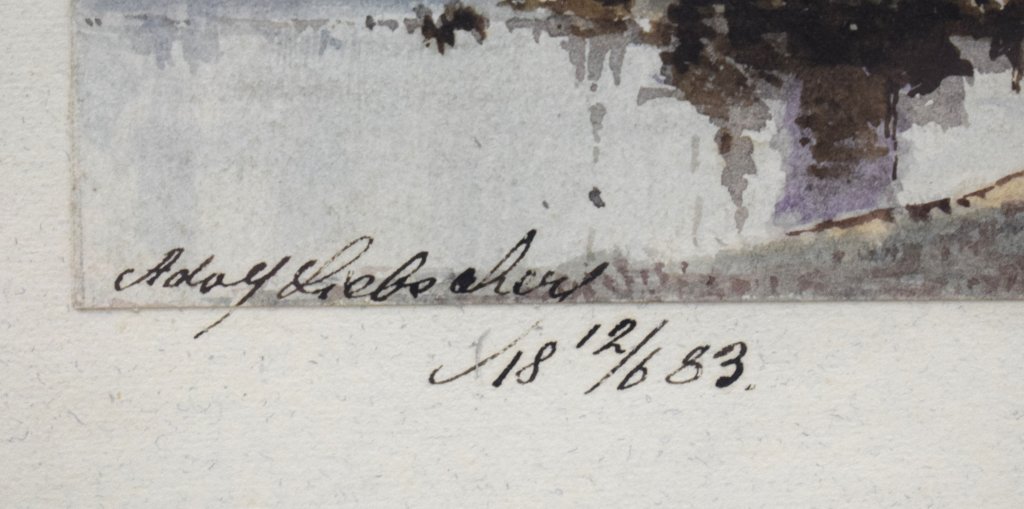 Adolf Liebscher
18 12/6 83.